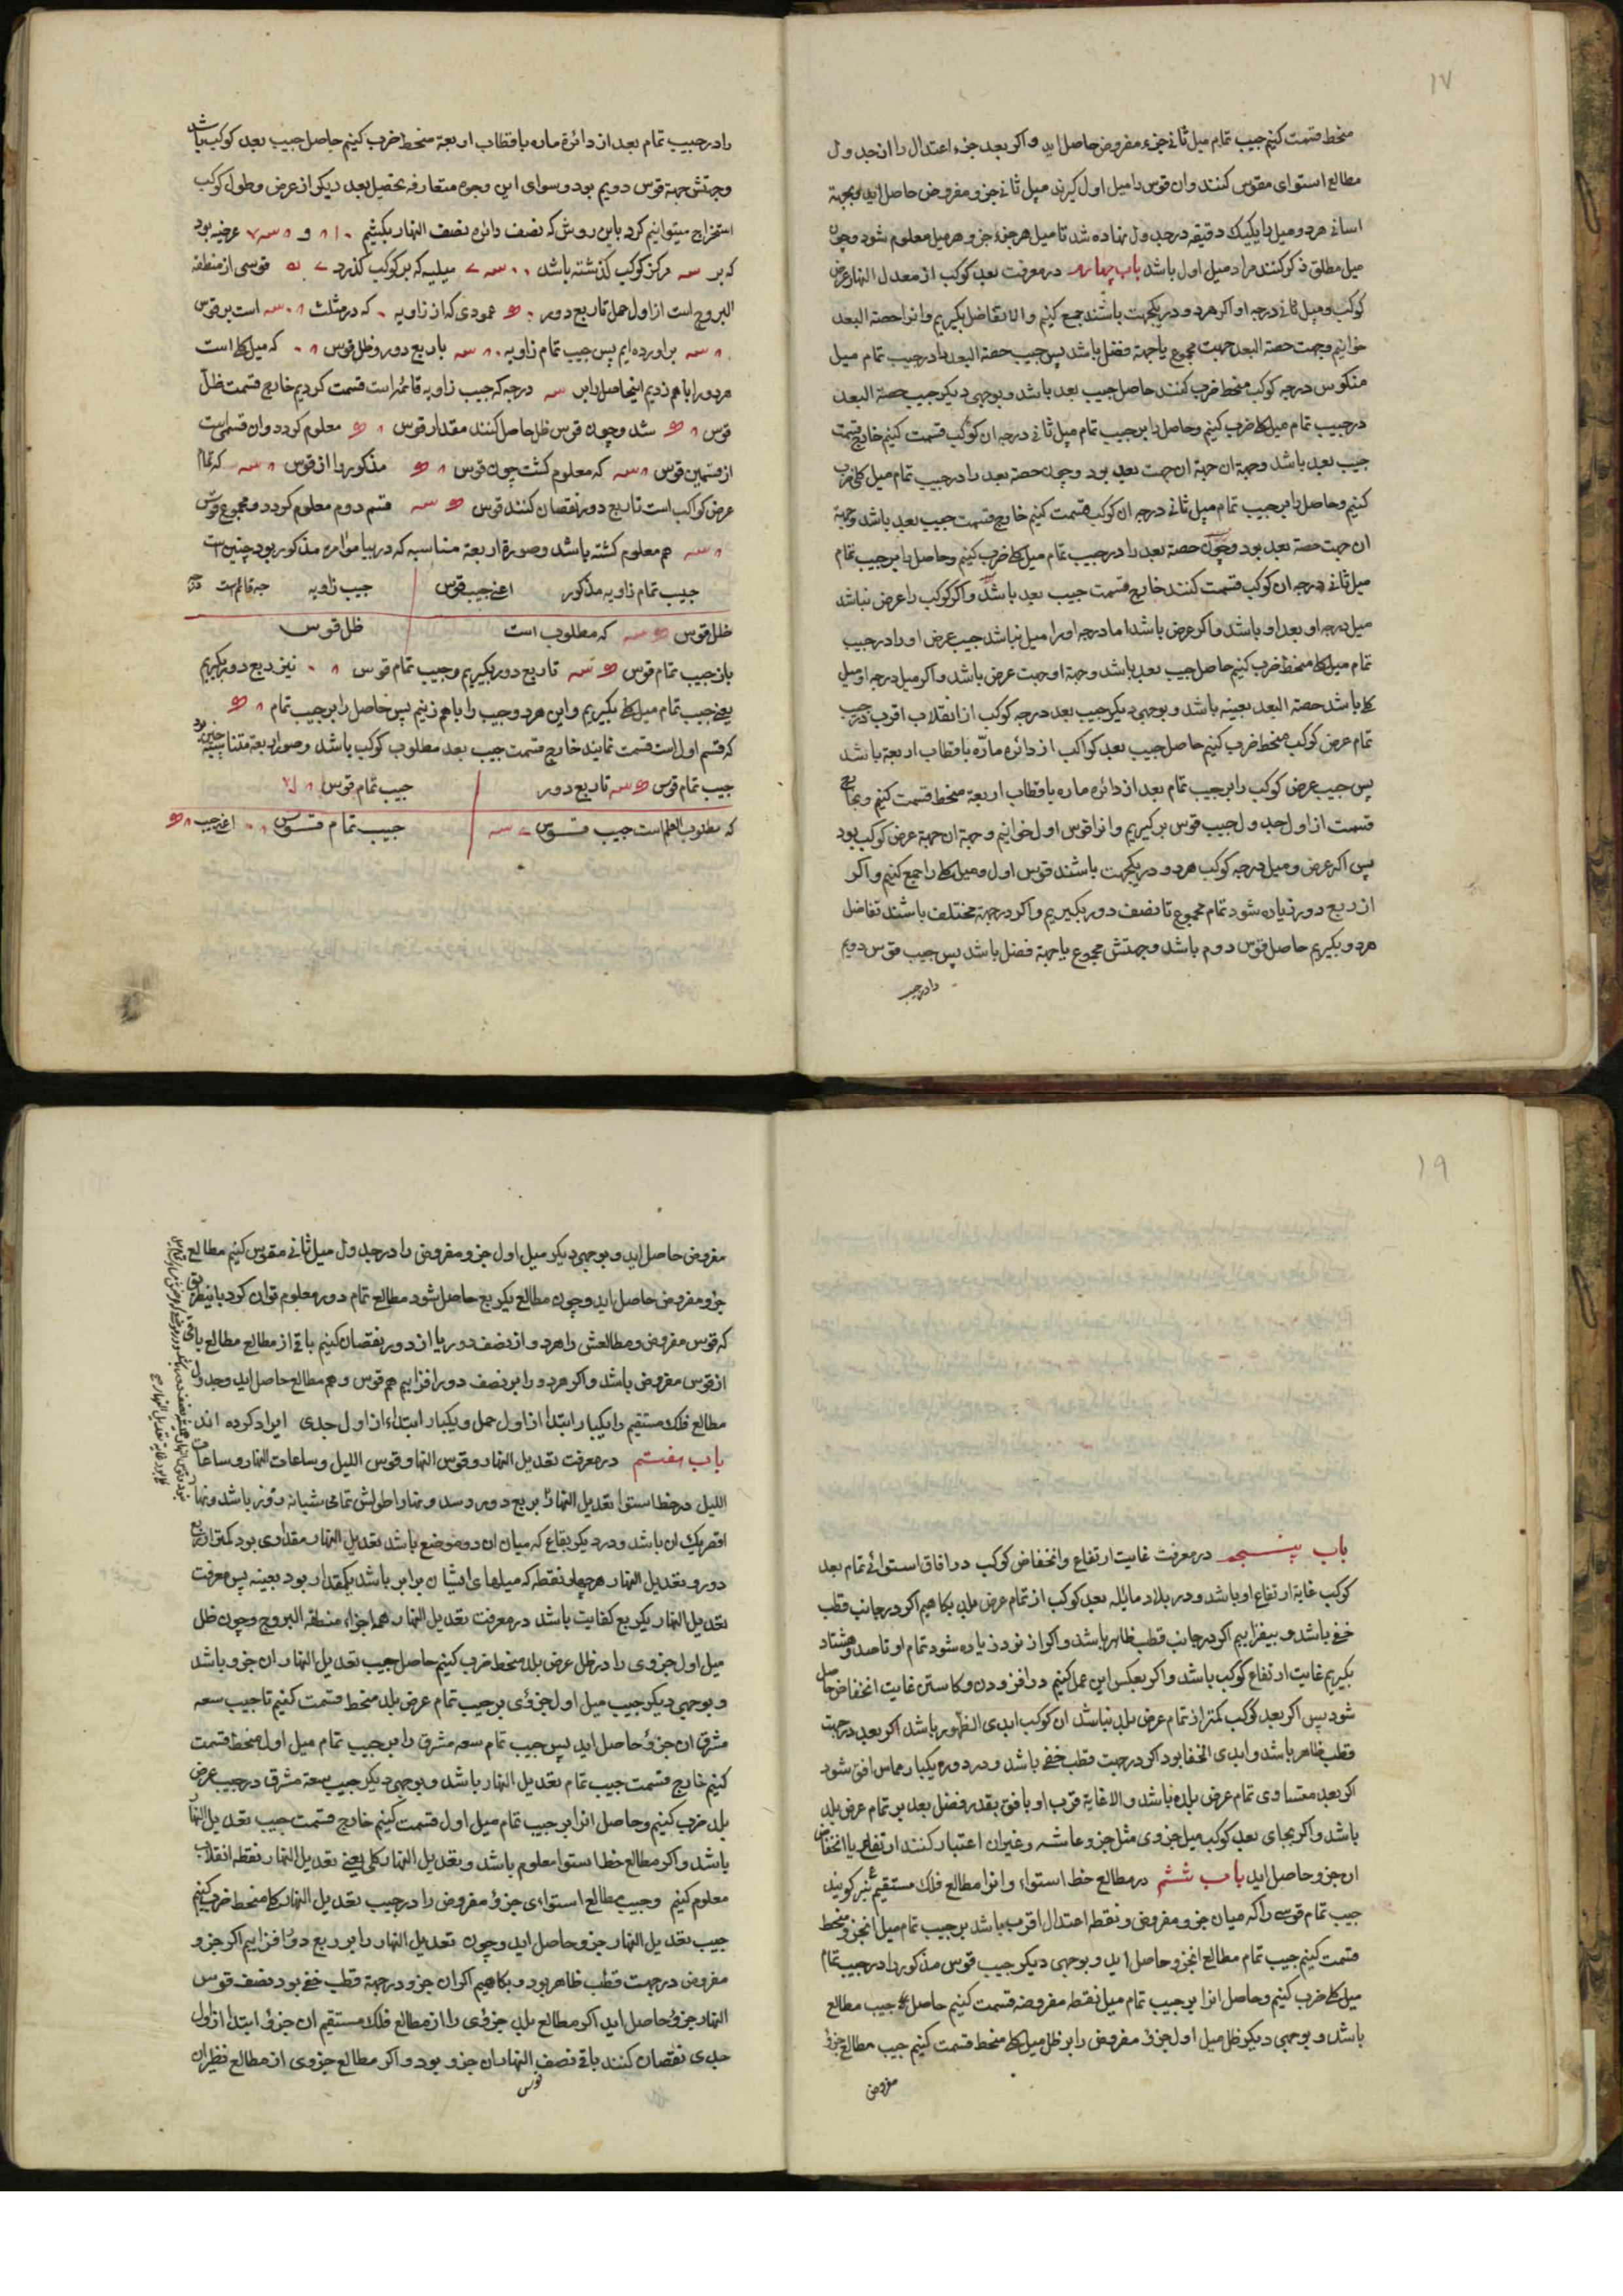 ١٧
منحط قسمت کنیم جیب تمام میل ثانی جزء مفروض حاصل اید و اکر بعد جزء اعتدال را از جدول
مطالع استوای مقوس کنند وان قوس را میل اول کیرند میل ثانی جزو مفروض حاصل اید و بجهة
اسانی هر دو میل را یکیک دقیقه در جدول نهاده شد تا میل هر جزء جزو هر میل معلوم شود و چون
میل مطلق ذکر کنند مراد میل اول باشد باب چهارم در معرفت بعد کوکب از معدل النهار عرض
کوکب و میل ثانی درجه او اکر هر دو در یکجهت باشند جمع کنیم والا تفاضل بکیریم وانرا حصة البعد
خوانیم و جهت حصة البعد جهت مجموع یا جهة فضل باشد پس جیب حصة البعد را در جیب تمام میل
منکوس درجه کوکب منحط ضرب کنند حاصل جیب بعد باشد و بوجهی دیکر جیب حصة البعد
در جیب تمام میل کلی ضرب کنیم و حاصل را بر جیب تمام میل ثانی درجه ان کوکب قسمت کنیم خارج قسمت
جیب بعد باشد و جهة ان جهة ان جهت بعد بود و چون حصه بعد را در جیب تمام میل کلی ضرب
کنیم و حاصل را بر جیب تمام میل ثانی درجه ان کوکب قسمت کنیم خارج قسمت جیب بعد باشد و جهة
ان جهت حصه بعد بود و چون حصه بعد را در جیب تمام میل کلی ضرب کنیم و حاصل را بر جیب تمام
میل ثانی درجه ان کوکب قسمت کنند خارج قسمت جیب بعد باشد و اکر کوکب را عرض نباشد
میل درجه او بعد او باشد و اکر عرض باشد اما درجه او را میل نباشد جیب عرض او را در جیب
تمام میل کلی منحط ضرب کنیم حاصل جیب بعد باشد و جهة او جهت عرض باشد و اکر میل درجه او میل
کلی باشد حصة البعد بعینه باشد و بوجهی دیکر جیب بعد درجه کوکب از انقلاب اقرب در جیب
تمام عرض کوکب منحط ضرب کنیم حاصل جیب بعد کواکب از دائره مارّه باقطاب اربعة باشد
پس جیب عرض کوکب را بر جیب تمام بعد از دائره ماره باقطاب اربعة منحط قسمت کنیم و بخارج
قسمت از اول جدول جیب قوس بر کیریم وانرا قوس اول خوانیم و جهة ان جهة عرض کوکب بود
پس اکر عرض و میل درجه کوکب هر دو در یکجهت باشند قوس اول و میل کلی را جمع کنیم و اکر
از ربع دور زیاده شود تمام مجموع تا نصف دور بکیریم و اکر در جهة مختلف باشند تفاضل
هر دو بکیریم حاصل قوس دوم باشد و جهتش مجموع یا جهة فضل باشد پس جیب قوس دویم
را در جیب
را در جیب تمام بعد از دائرة ماره باقطاب اربعة منحط ضرب کنیم حاصل جیب بعد کوکب باشد
و جهتش جهة قوس دویم بود و سوای این وجوه متعارفه تحصیل بعد دیکر از عرض و طول کوکب
استخراج میتوانیم کرد باین روش که نصف دائره نصف النهار بکشیم عرضیه بود
که بر مرکز کوکب کذشته باشد میلیه که بر کوکب کذرد قوسی از منطقه
البروج است از اول حمل تا ربع دور عمودی که از زاویه که در مثلث است بر قوس
بر اورده ایم پس جیب تمام زاویه با ربع دور و ظل قوس که میل کلی است
هر دو را باهم زدیم انچه حاصل را بر درجه که جیب زاویه قائمه است قسمت کردیم خارج قسمت ظل
قوس شد و چون قوس ظل حاصل کنند مقدار قوس معلوم کردد وان قسمی است
از قسمین قوس که معلوم کشت چون قوس مذکور را از قوس که تمام
عرض کواکب است تا ربع دور نقصان کنند قوس قسم دوم معلوم کردد و مجموع قوس
هم معلوم کشته باشد و صورة اربعة متناسبه که در بیا موامره مذکور بود چنین است
جیب تمام زاویه مذکور اعنی جیب قوس جیب زاویه جه قائم است
ظل قوس که مطلوب است ظل قوس
باز جیب تمام قوس تا ربع دور بکیریم و جیب تمام قوس نیز ربع دور بکیریم
یعنی جیب تمام میل کلی بکیریم و این هر دو جیب را باهم زنیم پس حاصل را بر جیب تمام
که قسم اول است قسمت نمایند خارج قسمت جیب بعد مطلوب کوکب باشد و صورة اربعة متناسبه چنین بود
جیب تمام قوس تا ربع دور جیب تمام قوس
که مطلوب العلم است جیب قوس جیب تمام قوس اعنی جیب
١٩
باب پنجم در معرفت غایت ارتفاع وانخفاض کوکب در افاق استوائی تمام بعد
کوکب غایة ارتفاع او باشد و در بلاد مائله بعد کوکب از تمام عرض بلد بکاهیم اکر در جانب قطب
خفی باشد و بیفزاییم اکر در جانب قطب ظاهر باشد و اکر از نود زیاده شود تمام او تا صد و هشتاد
بکیریم غایت ارتفاع کوکب باشد و اکر بعکس این عمل کنیم در افزودن و کاستن غایت انخفاض حاصل
شود پس اکر بعد کوکب کمتر از تمام عرض بلد نباشد ان کوکب ابدی الظهور باشد اکر بعد در جهت
قطب ظاهر باشد و ابدی الخفا بود اکر در جهت قطب خفی باشد و در دوره یکبار مماس افق شود
اکر بعد متساوی تمام عرض بلده باشد والا غایة قرب او بافق بقدر فضل بعد بر تمام عرض بلد
باشد و اکر بجای بعد کوکب میل جزوی مثل جزو عاشر و غیر ان اعتبار کنند ارتفاع یا انخفاض
ان جزو حاصل اید باب ششم در مطالع خط استواء وانرا مطالع فلک مستقیم نیز کویند
جیب تمام قوسی را که میان جزو مفروض و نقطه اعتدال اقرب باشد بر جیب تمام میل انجزو منحط
قسمت کنیم جیب تمام مطالع انجزو حاصل اید و بوجهی دیکر جیب قوس مذکور را در جیب تمام
میل کلی ضرب کنیم و حاصل انرا بر جیب تمام میل نقطه مفروضه قسمت کنیم حاصل جیب مطالع
باشد و بوجهی دیکر ظل میل اول جزء مفروض را بر ظل میل کلی منحط قسمت کنیم جیب مطالع جزؤ
مفروض
مفروض حاصل اید و بوجهی دیکر میل اول جزو مفروض را در جدول میل ثانی مقوس کنیم مطالع
جزو مفروض حاصل اید و چون مطالع یکربع حاصل شود مطالع تمام دور معلوم توان کرد باینطریق
که قوس مفروض و مطالعش را هر دو از نصف دور یا از دور نقصان کنیم باقی از مطالع مطالع باقی
از قوس مفروض باشد و اکر هر دو را بر نصف دور افزاییم هم قوس و هم مطالع حاصل اید و جدول
مطالع فلک مستقیم را یکبار ابتدا از اول حمل و یکبار ابتداء از اول جدی ایراد کرده اند
باب هفتم در معرفت تعدیل النهار و قوس النهار و قوس اللیل و ساعات النهار و ساعات
اللیل در خط استوا تعدیل النهار بربع دور رسد و نهار اطولش تمامی شبانه روز باشد و نهار
اقصر یک ان باشد و در دیکر بقاع که میان ان دو موضع باشد تعدیل النهار مقداری بود کمتر از ربع
دور و تعدیل النهار هر چهار نقطه که میلهای ایشان برابر باشد یکمقدار بود بعینه پس معرفت
تعدیل النهار یکربع کفایت باشد در معرفت تعدیل النهار همه اجزاء منطقه البروج و چون ظل
میل اول جزوی را در ظل عرض بلد منحط ضرب کنیم حاصل جیب تعدیل النهار ان جزو باشد
و بوجهی دیکر جیب میل اول جزؤی بر جیب تمام عرض بلد منحط قسمت کنیم تا جیب سعه
مشرق ان جزؤ حاصل اید پس جیب تمام سعه مشرق را بر جیب تمام میل اول منحط قسمت
کنیم خارج قسمت جیب تمام تعدیل النهار باشد و بوجهی دیکر جیب سعة مشرق در جیب عرض
بلد ضرب کنیم و حاصل انرا بر جیب تمام میل اول قسمت کنیم خارج قسمت جیب تعدیل النهار
باشد و اکر مطالع خط استوا معلوم باشد و تعدیل النهار کلی یعنی تعدیل النهار نقطه انقلاب
معلوم کنیم و جیب مطالع استواءی جزؤ مفروض را در جیب تعدیل النهار کلی منحط ضرب کنیم
جیب تعدیل النهار جزو حاصل اید و چون تعدیل النهار را بر ربع دور افزاییم اکر جزو
مفروض در جهت قطب ظاهر بود و بکاهیم اکر ان جزو در جهة قطب خفی بود نصف قوس
النهار جزؤ حاصل اید اکر مطالع بلد جزؤی را از مطالع فلک مستقیم ان جزؤ ابتدا از اول
جدی نقصان کنند باقی نصف النهار ان جزو بود و اکر مطالع جزوی از مطالع نظیر ان
قوس